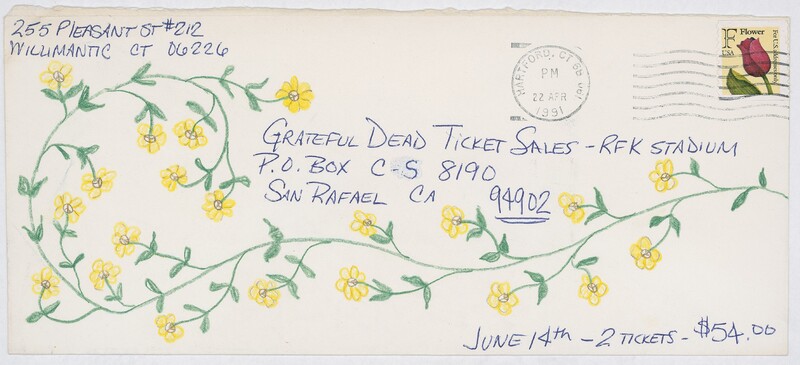 255 PLEASANT ST #212
WILLIMANTIC CT 06226
HARTFORD, CT
PM
22 APR
1991
F
USA
Flower
For U.S. addresses only
GRATEFUL DEAD TICKET SALES - RFK STADIUM
P.O. BOX C-S 8190
SAN RAFAEL CA 94902
JUNE 14th - 2 TICKETS - $54.00